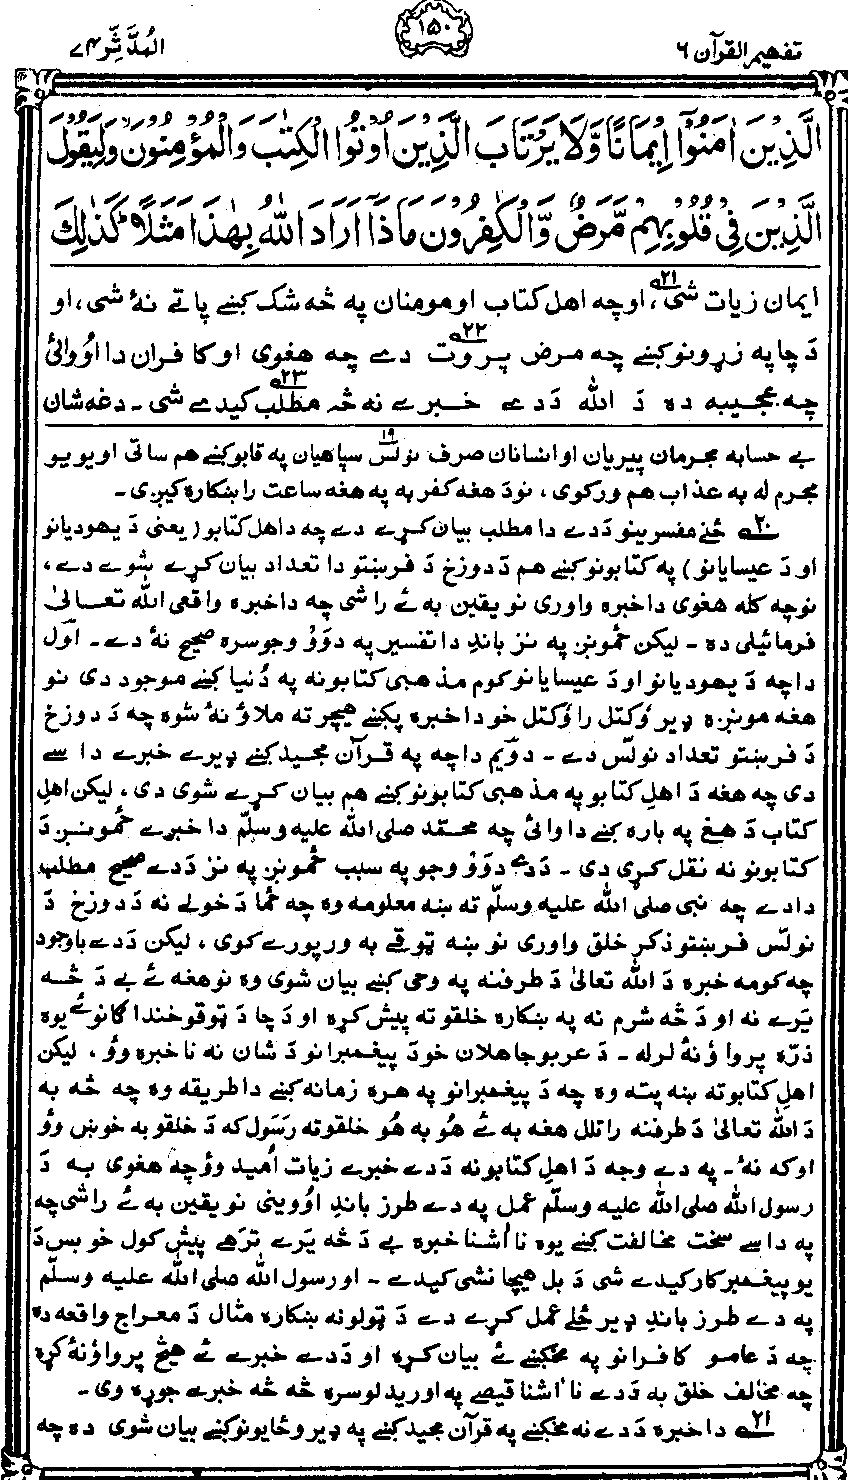 تفهیم القرآن ۶
۱۵۰
المُدَّثِّر ۷۴
الَّذِيْنَ اٰمَنُوْٓا اِيْمَانًا وَّلَا يَرْتَابَ الَّذِيْنَ اُوْتُوا الْكِتٰبَ وَالْمُؤْمِنُوْنَ ۙ وَلِيَقُوْلَ
الَّذِيْنَ فِيْ قُلُوْبِهِمْ مَّرَضٌ وَّالْكٰفِرُوْنَ مَاذَآ اَرَادَ اللّٰهُ بِهٰذَا مَثَلًا ؕ كَذٰلِكَ
ایمان زیات شی ۲۱، اوچه اهل کتاب او مومنان په څه شک کښے پاتے نۀ شی، او
دَ چا په زړونو کښے چه مرض پروت ۲۲ دے چه هغوی او کافران دا اُووائی
چه عجیبه ده دَ الله دَ دے خبرے نه څه مطلب ۲۳ کیدے شی ـ دغه شان
بے حسابه مجرمان پیریان او انسانان صرف نولس ۱۹ سپاهیان په قابو کښے هم ساتی او یو یو
مجرم له په عذاب هم ورکوی، نو دَ هغه کفر به په هغه ساعت راښکاره کیږی ـ
۲۰ ځنے مفسرینو دَ دے دا مطلب بیان کړے دے چه دَ اهل کتابو (یعنی دَ یهودیانو
او دَ عیسایانو) په کتابونو کښے هم دَ دوزخ دَ فرښتو دا تعداد بیان کړے شوے دے،
نو چه کله هغوی دا خبره واوری نو یقین به ئے راشی چه دا خبره واقعی الله تعالیٰ
فرمائیلی ده ـ لیکن څمونږ په نز باندِ دا تفسیر په دوَوْ وجو سره صحیح نۀ دے ـ اوّل
دا چه دَ یهودیانو او دَ عیسایانو کوم مذهبی کتابونه په دُنیا کښے موجود دی نو
هغه مونږه ډیر وُکتل راوُکتل خو دا خبره پکښے هیچرته ملاؤ نۀ شوه چه دَ دوزخ
دَ فرښتو تعداد نولس دے ـ دویم دا چه په قرآن مجید کښے ډیرے خبرے داسے
دی چه هغه دَ اهلِ کتابو په مذهبی کتابونو کښے هم بیان کړے شوی دی، لیکن اهلِ
کتاب دَ هغے په باره کښے دا وائی چه محمّد صلی الله علیه وسلّم دا خبرے څمونږ دَ
کتابونو نه نقل کړی دی ـ دَ دے دوَوْ وجو په سبب څمونږ په نز دَ دے صحیح مطلب
دا دے چه نبی صلی الله علیه وسلّم ته ښه معلومه وه چه څما دَ خولے نه دَ دوزخ دَ
نولس فرښتو ذکر خلق واوری نو ښه ټوقے به ورپورے کوی، لیکن دَ دے باوجود
چه کومه خبره دَ الله تعالیٰ دَ طرفنه په وحی کښے بیان شوی وه نو هغه ئے بے دَ څه
یَرے نه او دَ څه شرم نه په ښکاره خلقو ته پیش کړه او دَ چا دَ ټوقو خندا ګانو ئے یوه
ذرّه پروا وُنۀ لرله ـ دَ عربو جاهلان خو دَ پیغمبرانو دَ شان نه ناخبره وؤ، لیکن
اهلِ کتابو ته ښه پته وه چه دَ پیغمبرانو په هره زمانه کښے دا طریقه وه چه څه به
دَ الله تعالیٰ دَ طرفنه راتلل هغه به ئے هُو به هُو خلقو ته رَسَول که دَ خلقو به خوښ وؤ
او که نۀ ـ په دے وجه دَ اهلِ کتابو نه دَ دے خبرے زیات اُمید وؤ چه هغوی به دَ
رسول الله صلی الله علیه وسلّم عمل په دے طرز باندِ اُووینی نو یقین به ئے راشی چه
په داسے سخت مخالفت کښے یوه نا اُشنا خبره بے دَ څه یَرے ترَهے پیش کول خو بس دَ
یو پیغمبر کار کیدے شی دَ بل هیچا نشی کیدے ـ او رسول الله صلی الله علیه وسلّم
په دے طرز باندِ ډیر ځلے عمل کړے دے دَ ټولو نه ښکاره مثال دَ معراج واقعه ده
چه دَ عامو کافرانو په مخکښے ئے بیان کړه او دَ دے خبرے ئے هیڅ پروا وُنۀ کړه
چه مخالف خلق به دَ دے نا اُشنا قیصے په اوریدلو سره څه څه خبرے جوړه وی ـ
۲۱ دا خبره دَ دے نه مخکښے په قرآن مجید کښے په ډیرو ځایونو کښے بیان شوی ده چه